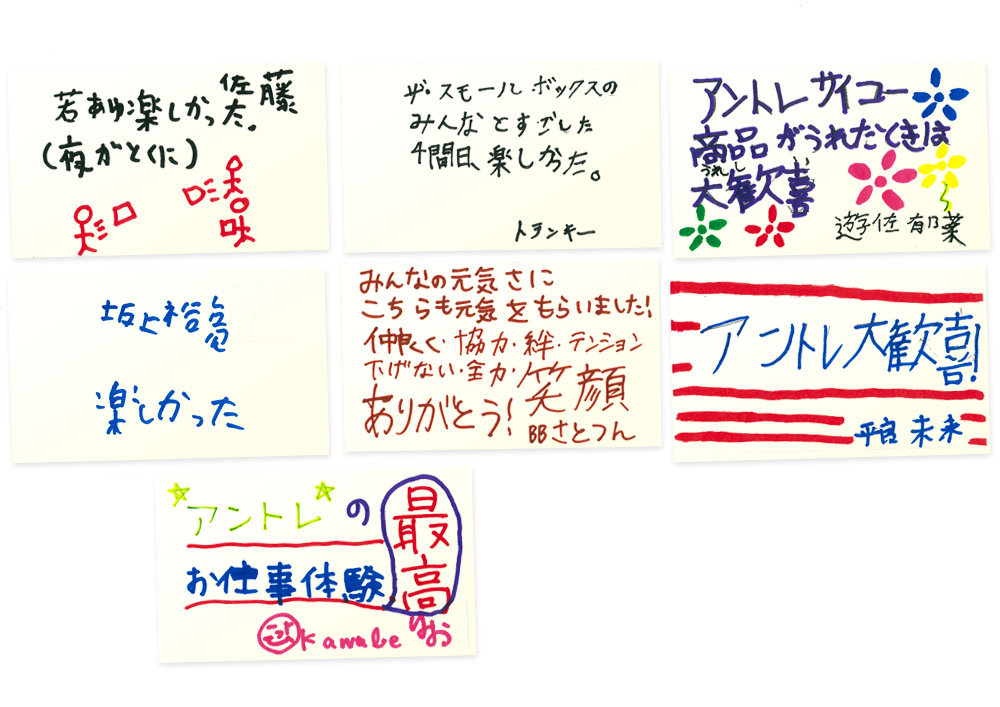 佐藤
若あゆ楽しかった。
(夜がとくに)
ザ・スモールボックスの
みんなとすごした
4間日、楽しかった。
トランキー
アントレサイコー
商品がうれたときは
うれしい
大歓喜
遊佐 有乃葉
坂上裕亮
楽しかった
みんなの元気さに
こちらも元気をもらいました!
仲良く・協力・絆・テンション
下げない・全力・笑顔
ありがとう!
BBさとつん
アントレ大歓喜!
平良 未来
アントレの
最高
お仕事体験
kawabe